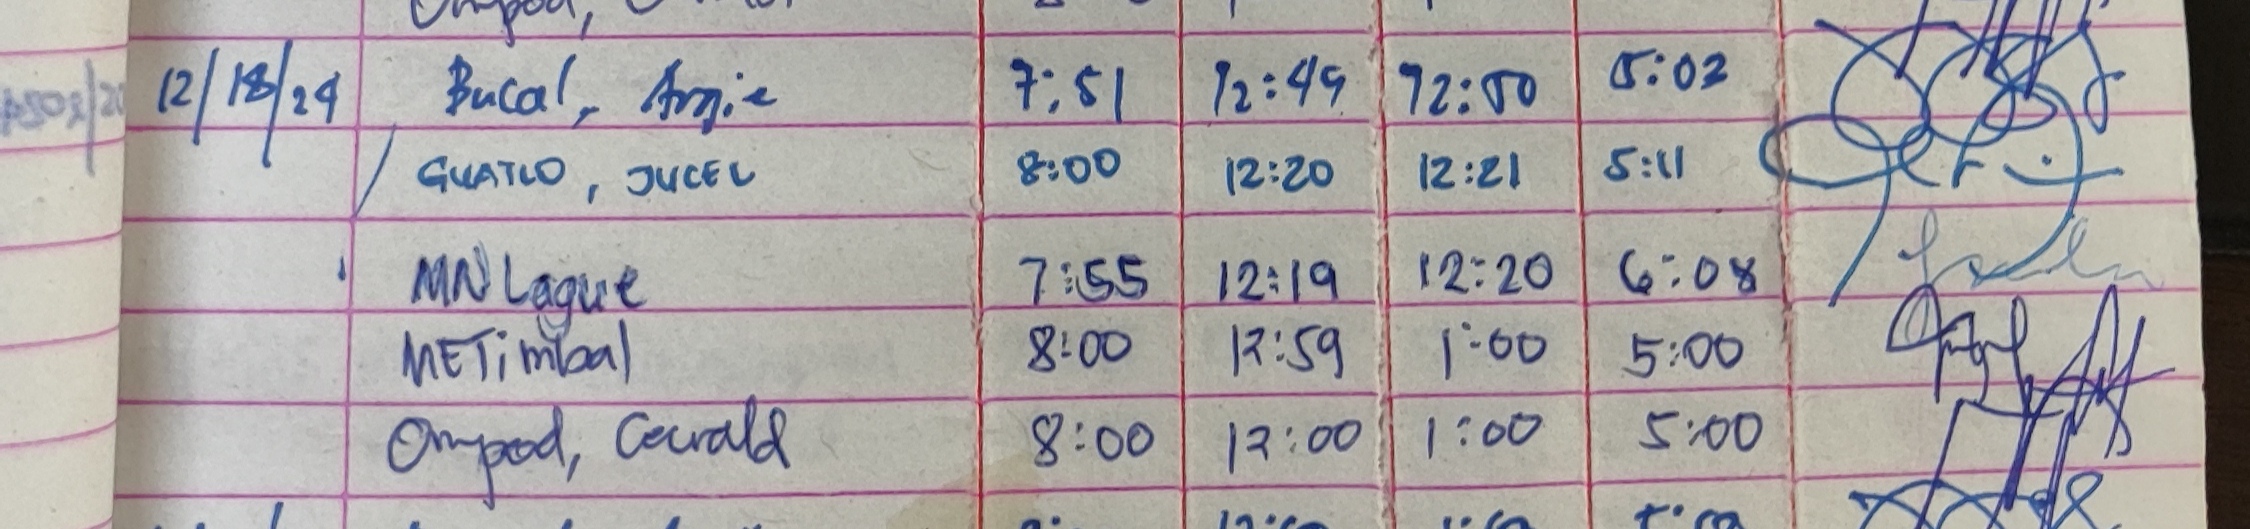 12/18/24 Bucal, Angie 7:51 12:49 12:50 5:02
GUATLO, JUCEL 8:00 12:20 12:21 5:11
MNLague 7:55 12:19 12:20 6:08
METimbal 8:00 12:59 1:00 5:00
Ompod, Cerrald 8:00 12:00 1:00 5:00